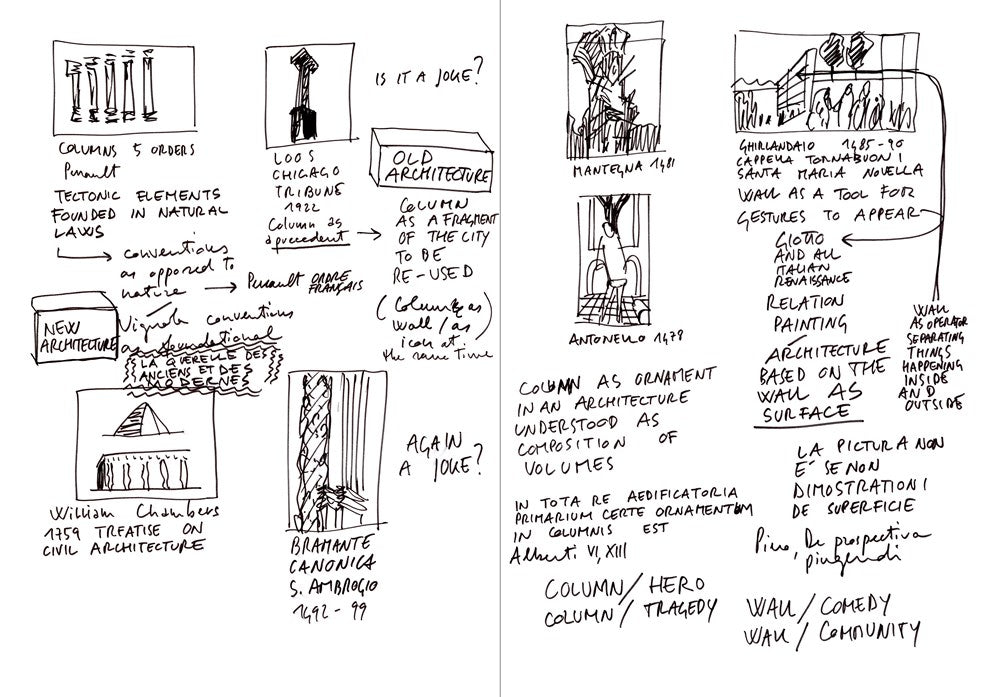 COLUMNS 5 ORDERS
Perrault
TECTONIC ELEMENTS
FOUNDED IN NATURAL
LAWS
conventions
as opposed to
nature
Perrault ORDRE
FRANÇAIS
Vignola conventions
as foundational
NEW
ARCHITECTURE
LA QUERELLE DES
ANCIENS ET DES
MODERNES
William Chambers
1759 TREATISE ON
CIVIL ARCHITECTURE
LOOS
CHICAGO
TRIBUNE
1922
Column as
a precedent
IS IT A JOKE?
OLD
ARCHITECTURE
COLUMN
AS A FRAGMENT
OF THE CITY
TO BE
RE-USED
(Column as
wall / as
icon at
the same time)
AGAIN
A JOKE?
BRAMANTE
CANONICA
S. AMBROGIO
1492-99
MANTEGNA 1481
ANTONELLO 1478
COLUMN AS ORNAMENT
IN AN ARCHITECTURE
UNDERSTOOD AS
COMPOSITION OF
VOLUMES
IN TOTA RE AEDIFICATORIA
PRIMARIUM CERTE ORNAMENTUM
IN COLUMNIS EST
Alberti VI, XIII
COLUMN/HERO
COLUMN/TRAGEDY
GHIRLANDAIO 1485-90
CAPPELLA TORNABUONI
SANTA MARIA NOVELLA
WALL AS A TOOL FOR
GESTURES TO APPEAR
GIOTTO
AND ALL
ITALIAN
RENAISSANCE
RELATION
PAINTING
ARCHITECTURE
BASED ON THE
WALL AS
SURFACE
WALL
AS OPERATOR
SEPARATING
THINGS
HAPPENING
INSIDE
AND
OUTSIDE
LA PICTURA NON
E' SE NON
DIMOSTRATIONI
DE SUPERFICIE
Piero, De prospectiva
pingendi
WALL/COMEDY
WALL/COMMUNITY